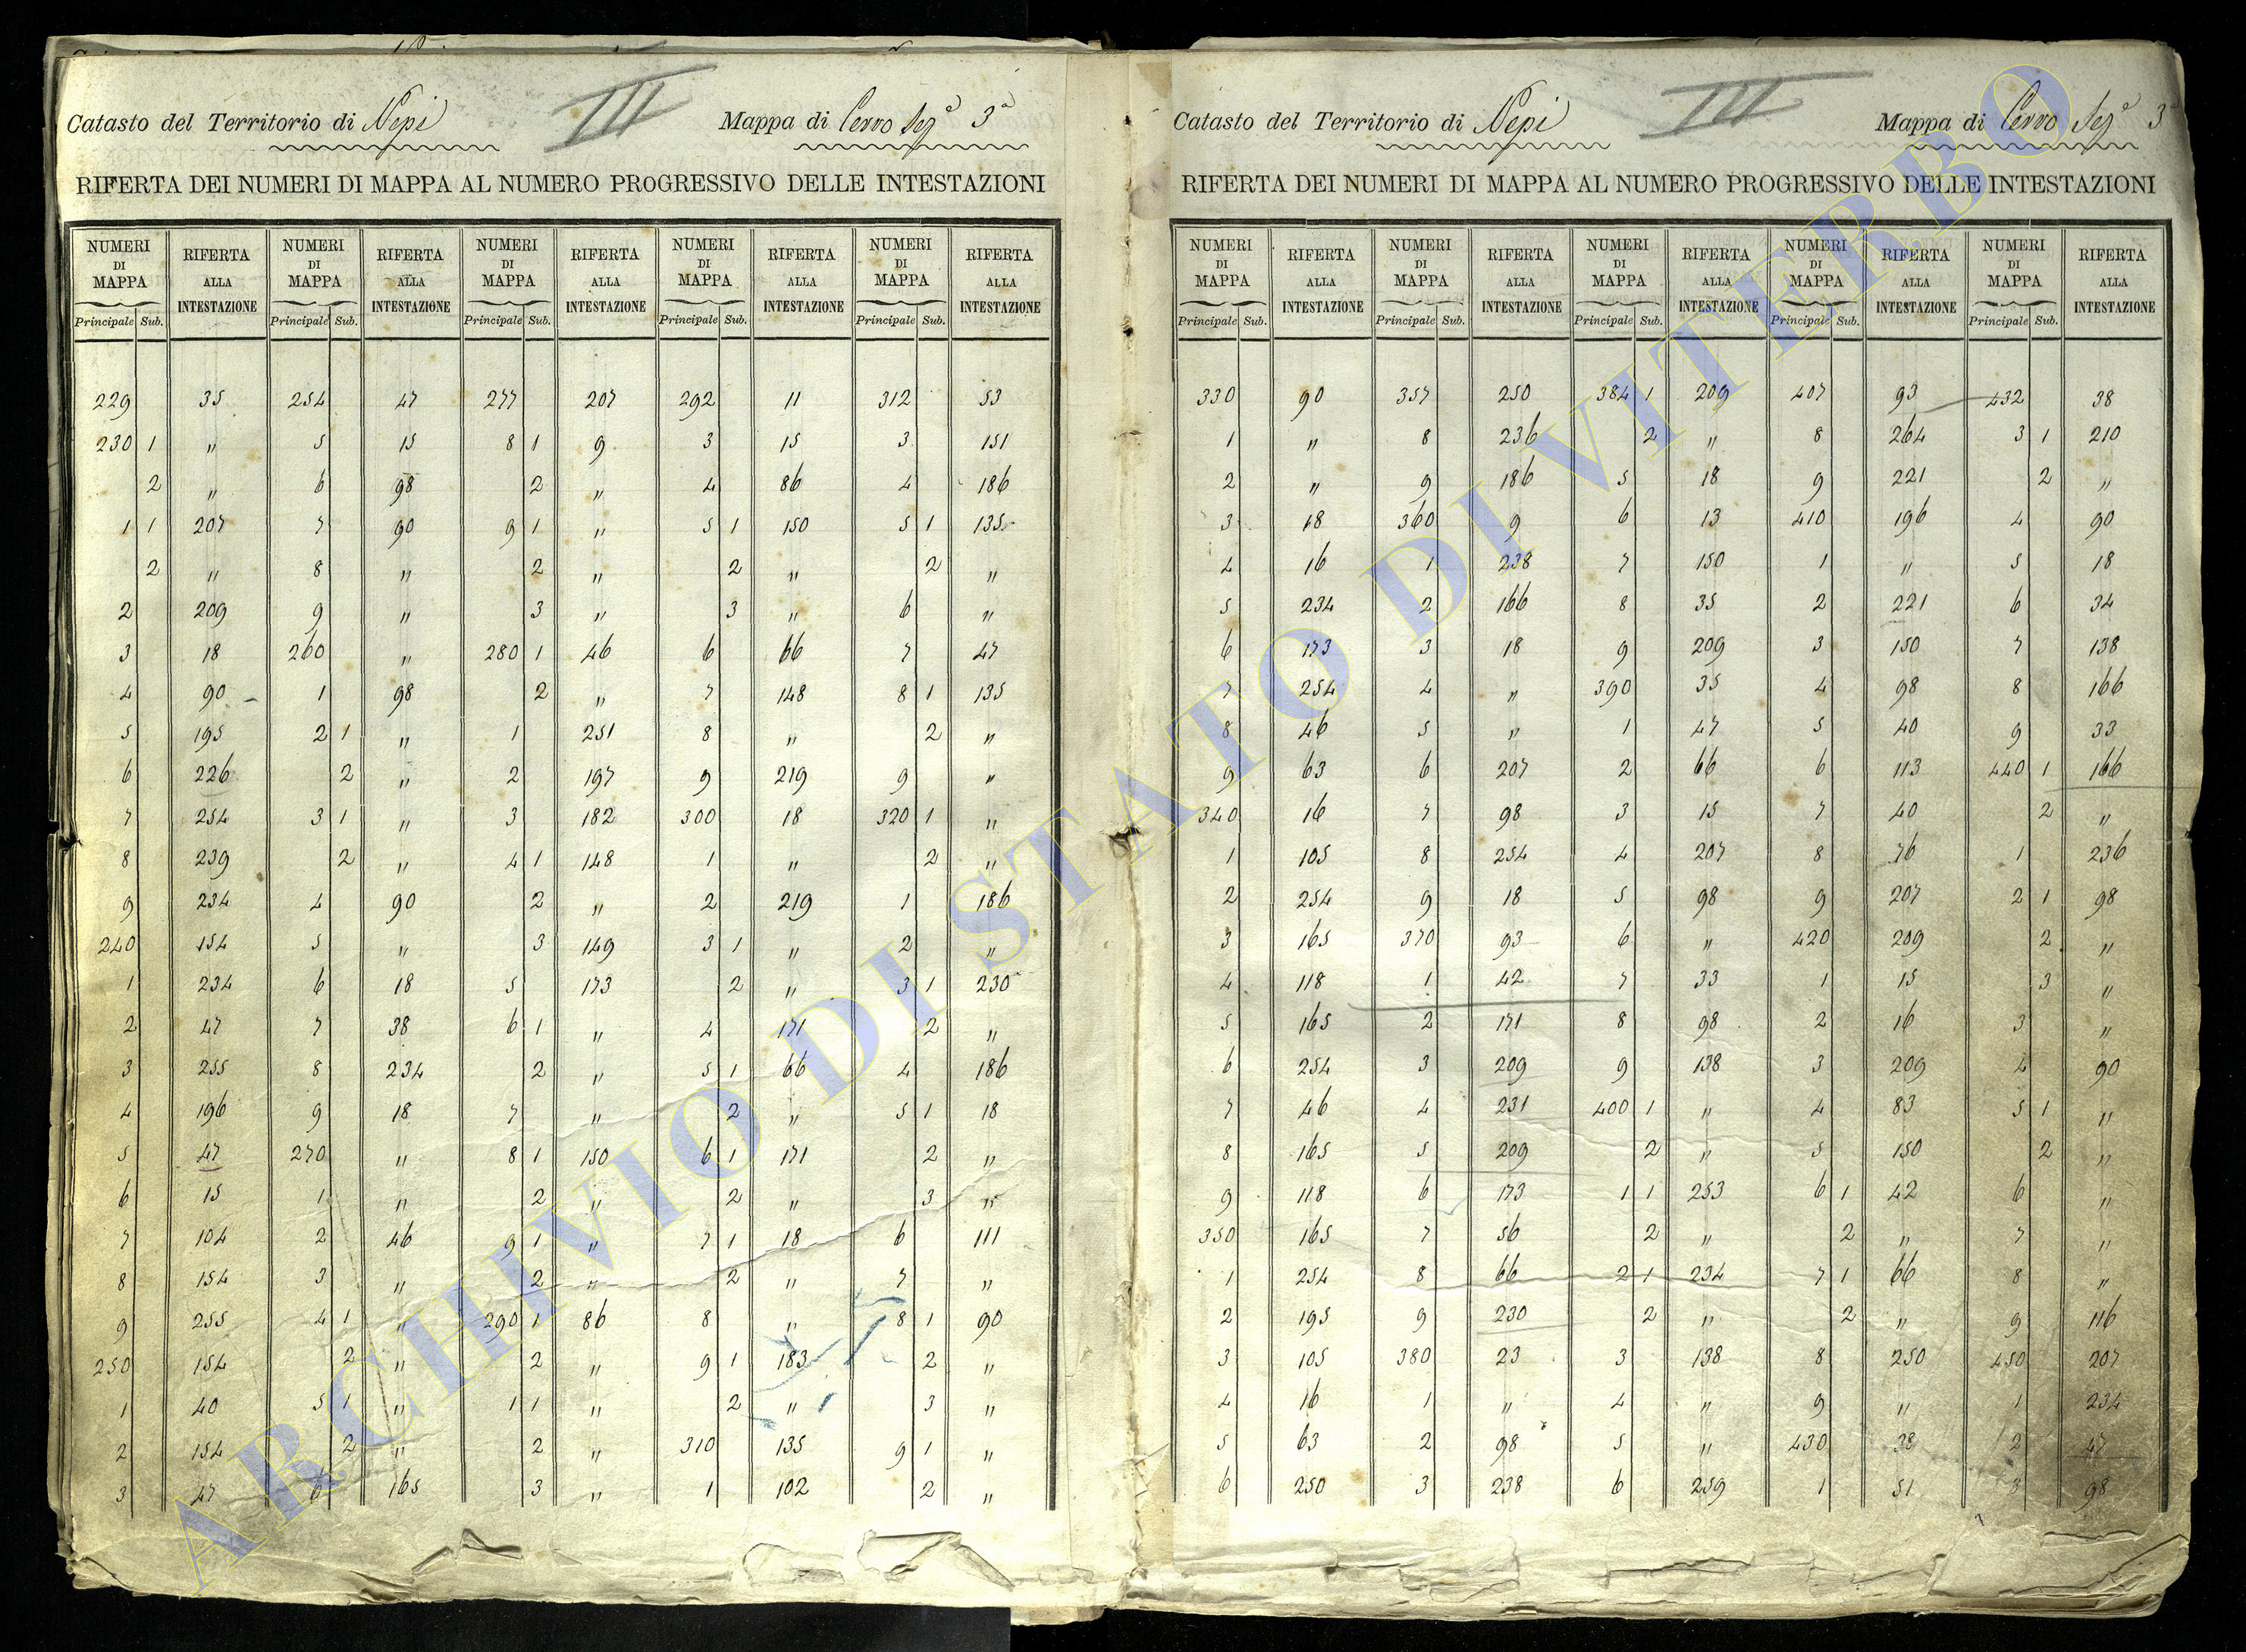 Catasto del Territorio di Nepi III Mappa di Cervo Sezᵉ 3ᵃ
RIFERTA DEI NUMERI DI MAPPA AL NUMERO PROGRESSIVO DELLE INTESTAZIONI
NUMERI DI MAPPA RIFERTA ALLA INTESTAZIONE NUMERI DI MAPPA RIFERTA ALLA INTESTAZIONE NUMERI DI MAPPA RIFERTA ALLA INTESTAZIONE NUMERI DI MAPPA RIFERTA ALLA INTESTAZIONE NUMERI DI MAPPA RIFERTA ALLA INTESTAZIONE
Principale Sub. Principale Sub. Principale Sub. Principale Sub. Principale Sub.
229 35 254 47 277 207 292 11 312 53
230 1 " 5 15 8 1 9 3 15 3 151
2 " 6 98 2 " 4 86 4 186
1 1 207 7 90 9 1 " 5 1 150 5 1 135
2 " 8 " 2 " 2 " 2 "
2 209 9 " 3 " 3 " 6 "
3 18 260 " 280 1 46 6 66 7 47
4 90 1 98 2 " 7 148 8 1 135
5 195 2 1 " 1 251 8 " 2 "
6 226 2 " 2 197 9 219 9 "
7 254 3 1 " 3 182 300 18 320 1 "
8 239 2 " 4 1 148 1 " 2 "
9 234 4 90 2 " 2 219 1 186
240 154 5 " 3 149 3 1 " 2 "
1 234 6 18 5 173 2 " 3 1 230
2 47 7 38 6 1 " 4 171 2 "
3 255 8 234 2 " 5 1 66 4 186
4 196 9 18 7 " 2 " 5 1 18
5 47 270 " 8 1 150 6 1 171 2 "
6 15 1 " 2 " 2 " 3 "
7 104 2 46 9 1 " 7 1 18 6 111
8 154 3 " 2 " 2 " 7 "
9 255 4 1 " 290 1 86 8 " 8 1 90
250 154 2 " 2 " 9 1 183 2 "
1 40 5 1 " 1 1 " 2 " 3 "
2 154 2 " 2 " 310 135 9 1 "
3 47 6 165 3 " 1 102 2 "
Catasto del Territorio di Nepi III Mappa di Cervo Sezᵉ 3ᵃ
RIFERTA DEI NUMERI DI MAPPA AL NUMERO PROGRESSIVO DELLE INTESTAZIONI
NUMERI DI MAPPA RIFERTA ALLA INTESTAZIONE NUMERI DI MAPPA RIFERTA ALLA INTESTAZIONE NUMERI DI MAPPA RIFERTA ALLA INTESTAZIONE NUMERI DI MAPPA RIFERTA ALLA INTESTAZIONE NUMERI DI MAPPA RIFERTA ALLA INTESTAZIONE
Principale Sub. Principale Sub. Principale Sub. Principale Sub. Principale Sub.
330 90 357 250 384 1 209 407 93 432 38
1 " 8 236 2 " 8 264 3 1 210
2 " 9 186 5 18 9 221 2 "
3 18 360 9 6 13 410 196 4 90
4 16 1 238 7 150 1 " 5 18
5 234 2 166 8 35 2 221 6 34
6 173 3 18 9 209 3 150 7 138
7 254 4 " 390 35 4 98 8 166
8 46 5 " 1 47 5 40 9 33
9 63 6 207 2 66 6 113 440 1 166
340 16 7 98 3 15 7 40 2 "
1 105 8 254 4 207 8 76 1 236
2 254 9 18 5 98 9 207 2 1 98
3 165 370 93 6 " 420 209 2 "
4 118 1 42 7 33 1 15 3 "
5 165 2 171 8 98 2 16 3 "
6 254 3 209 9 138 3 209 4 90
7 46 4 231 400 1 " 4 83 5 1 "
8 165 5 209 2 " 5 150 2 "
9 118 6 173 1 1 253 6 1 42 6 "
350 165 7 56 2 " 2 " 7 "
1 254 8 66 2 1 234 7 1 66 8 "
2 195 9 230 2 " 2 " 9 116
3 105 380 23 3 138 8 250 450 207
4 16 1 " 4 " 9 " 1 234
5 63 2 98 5 " 430 38 2 47
6 250 3 238 6 259 1 51 3 98
ARCHIVIO DI STATO DI VITERBO